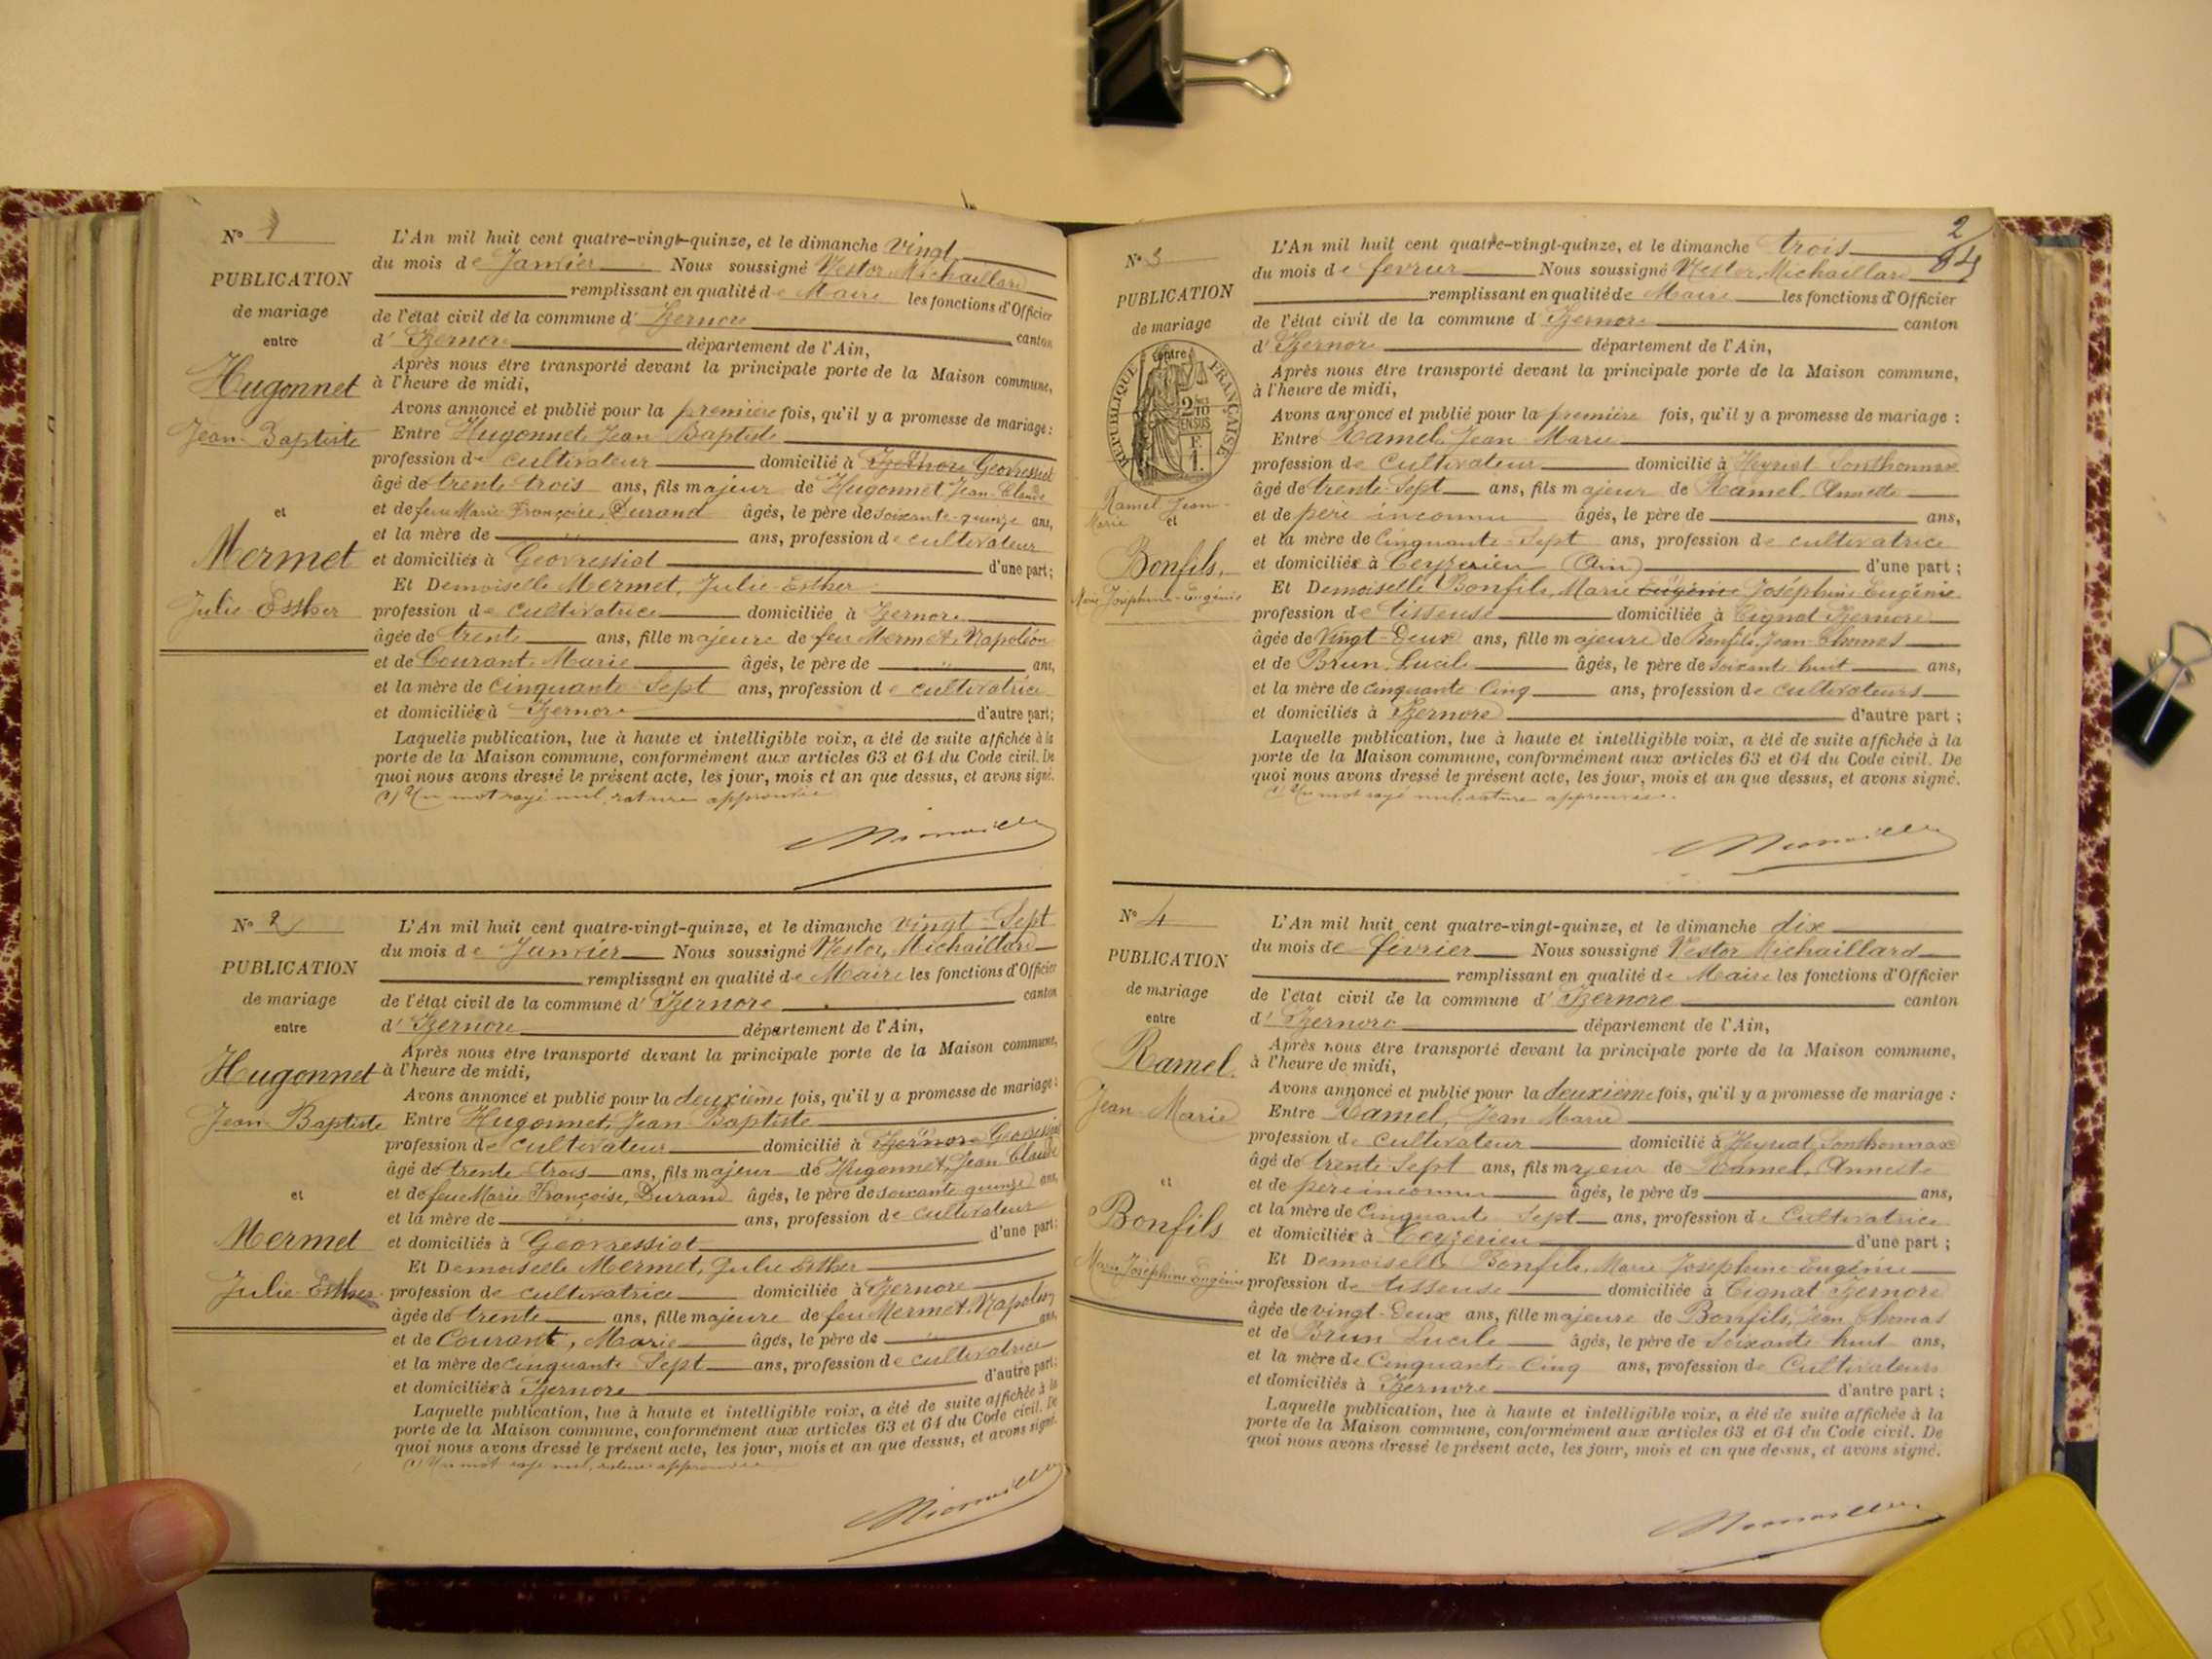 N° 1
PUBLICATION
de mariage
entre
Hugonnet
Jean-Baptiste
et
Mermet
Julie Esther
L'An mil huit cent quatre-vingt-quinze, et le dimanche vingt
du mois de Janvier Nous soussigné Nestor Michaillard
remplissant en qualité de Maire les fonctions d'Officier
de l'état civil de la commune d'Izernore canton
d'Izernore département de l'Ain,
Après nous être transporté devant la principale porte de la Maison commune,
à l'heure de midi,
Avons annoncé et publié pour la première fois, qu'il y a promesse de mariage :
Entre Hugonnet, Jean Baptiste
profession de cultivateur domicilié à Izernore Géovressiat
âgé de trente trois ans, fils majeur de Hugonnet, Jean-Claude
et de feue Marie Françoise, Durand âgés, le père de soixante-quinze ans,
et la mère de ans, profession de cultivateur
et domiciliés à Géovressiat d'une part ;
Et Demoiselle Mermet, Julie Esther
profession de cultivatrice domiciliée à Izernore
âgée de trente ans, fille majeure de feu Mermet, Napoléon
et de Courant, Marie âgés, le père de ans,
et la mère de cinquante Sept ans, profession de cultivatrice
et domiciliés à Izernore d'autre part;
Laquelle publication, lue à haute et intelligible voix, a été de suite affichée à la
porte de la Maison commune, conformément aux articles 63 et 64 du Code civil. De
quoi nous avons dressé le présent acte, les jour, mois et an que dessus, et avons signé.
(1) Un mot rayé nul, rature approuvée
N° 2
PUBLICATION
de mariage
entre
Hugonnet
Jean Baptiste
et
Mermet
Julie Esther
L'An mil huit cent quatre-vingt-quinze, et le dimanche vingt-Sept
du mois de Janvier Nous soussigné Nestor, Michaillard
remplissant en qualité de Maire les fonctions d'Officier
de l'état civil de la commune d'Izernore canton
d'Izernore département de l'Ain,
Après nous être transporté devant la principale porte de la Maison commune,
à l'heure de midi,
Avons annoncé et publié pour la deuxième fois, qu'il y a promesse de mariage :
Entre Hugonnet, Jean Baptiste
profession de cultivateur domicilié à Izernore Géovressiat
âgé de trente trois ans, fils majeur de Hugonnet, Jean Claude
et de feue Marie Françoise, Durand âgés, le père de soixante quinze ans,
et la mère de ans, profession de cultivateur
et domiciliés à Géovressiat d'une part;
Et Demoiselle Mermet, Julie Esther
profession de cultivatrice domiciliée à Izernore
âgée de trente ans, fille majeure de feu Mermet, Napoléon
et de Courant, Marie âgés, le père de ans,
et la mère de cinquante Sept ans, profession de cultivatrice
et domiciliés à Izernore d'autre part;
Laquelle publication, lue à haute et intelligible voix, a été de suite affichée à la
porte de la Maison commune, conformément aux articles 63 et 64 du Code civil. De
quoi nous avons dressé le présent acte, les jour, mois et an que dessus, et avons signé.
(1) Un mot rayé nul, rature approuvée
2
N° 3
PUBLICATION
de mariage
entre
RÉPUBLIQUE FRANÇAISE
2/10 EN SUS
F. 1.
Ramel Jean-
Marie
et
Bonfils,
Marie Joséphine-Eugénie
L'An mil huit cent quatre-vingt-quinze, et le dimanche trois
du mois de fevrier Nous soussigné Nestor, Michaillard
remplissant en qualité de Maire les fonctions d'Officier
de l'état civil de la commune d'Izernore canton
d'Izernore département de l'Ain,
Après nous être transporté devant la principale porte de la Maison commune,
à l'heure de midi,
Avons annoncé et publié pour la première fois, qu'il y a promesse de mariage :
Entre Ramel, Jean Marie
profession de Cultivateur domicilié à Heyriat Sonthonnax
âgé de trente Sept ans, fils majeur de Ramel, Annette
et de père inconnu âgés, le père de ans,
et la mère de Cinquante-Sept ans, profession de cultivatrice
et domiciliés à Ceyzérieu (Ain) d'une part ;
Et Demoiselle Bonfils, Marie Eugénie Joséphine Eugénie
profession de tisseuse domiciliée à Cignat Izernore
âgée de Vingt-Deux ans, fille majeure de Bonfils, Jean Thomas
et de Brun, Lucile âgés, le père de soixante huit ans,
et la mère de cinquante Cinq ans, profession de cultivateurs
et domiciliés à Izernore d'autre part ;
Laquelle publication, lue à haute et intelligible voix, a été de suite affichée à la
porte de la Maison commune, conformément aux articles 63 et 64 du Code civil. De
quoi nous avons dressé le présent acte, les jour, mois et an que dessus, et avons signé.
(1) Un mot rayé nul, rature approuvée.
N° 4
PUBLICATION
de mariage
entre
Ramel,
Jean Marie
et
Bonfils
Marie Joséphine Eugénie
L'An mil huit cent quatre-vingt-quinze, et le dimanche dix
du mois de fevrier Nous soussigné Nestor Michaillard
remplissant en qualité de Maire les fonctions d'Officier
de l'état civil de la commune d'Izernore canton
d'Izernore département de l'Ain,
Après nous être transporté devant la principale porte de la Maison commune,
à l'heure de midi,
Avons annoncé et publié pour la deuxième fois, qu'il y a promesse de mariage :
Entre Ramel, Jean Marie
profession de cultivateur domicilié à Heyriat, Sonthonnax
âgé de trente Sept ans, fils majeur de Ramel, Annette
et de père inconnu âgés, le père de ans,
et la mère de Cinquante Sept ans, profession de Cultivatrice
et domiciliés à Ceyzérieu d'une part ;
Et Demoiselle Bonfils, Marie Joséphine Eugénie
profession de tisseuse domiciliée à Cignat Izernore
âgée de vingt-Deux ans, fille majeure de Bonfils, Jean Thomas
et de Brun Lucile âgés, le père de Soixante huit ans,
et la mère de Cinquante-Cinq ans, profession de Cultivateurs
et domiciliés à Izernore d'autre part ;
Laquelle publication, lue à haute et intelligible voix, a été de suite affichée à la
porte de la Maison commune, conformément aux articles 63 et 64 du Code civil. De
quoi nous avons dressé le présent acte, les jour, mois et an que dessus, et avons signé.